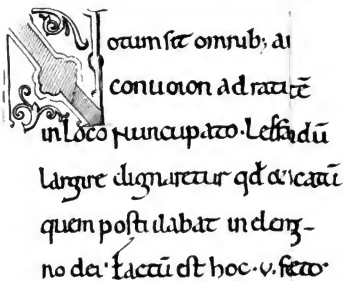 Notum sit omnib; au
conuoion ad ratitē
in loco nuncupato. Leffau dū
largire dignaretur qđ & scatū
quem postulabat in elemg-
no dei. factū est hoc .v. feto.